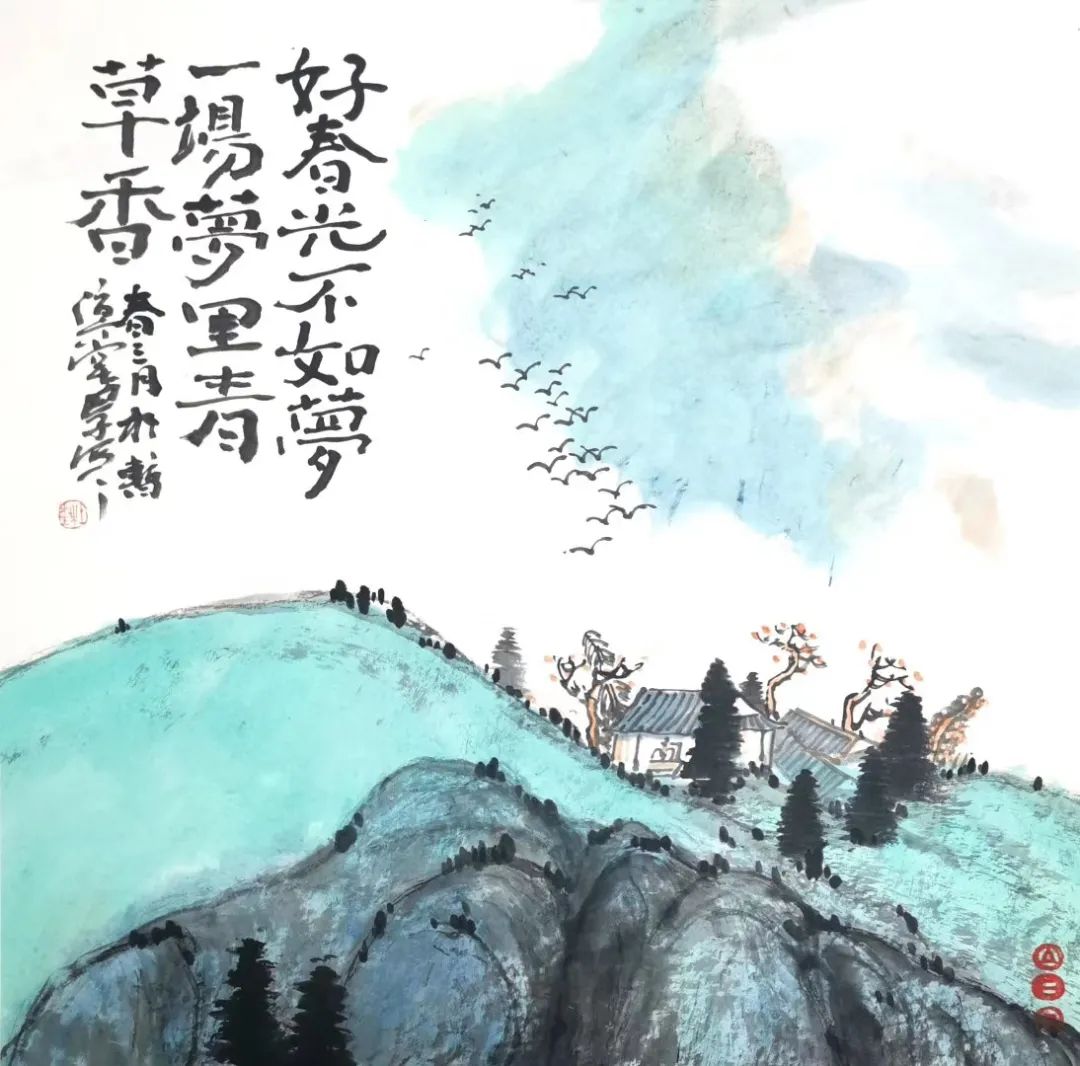 好春光不如夢
一場夢里青
草香
春三月於